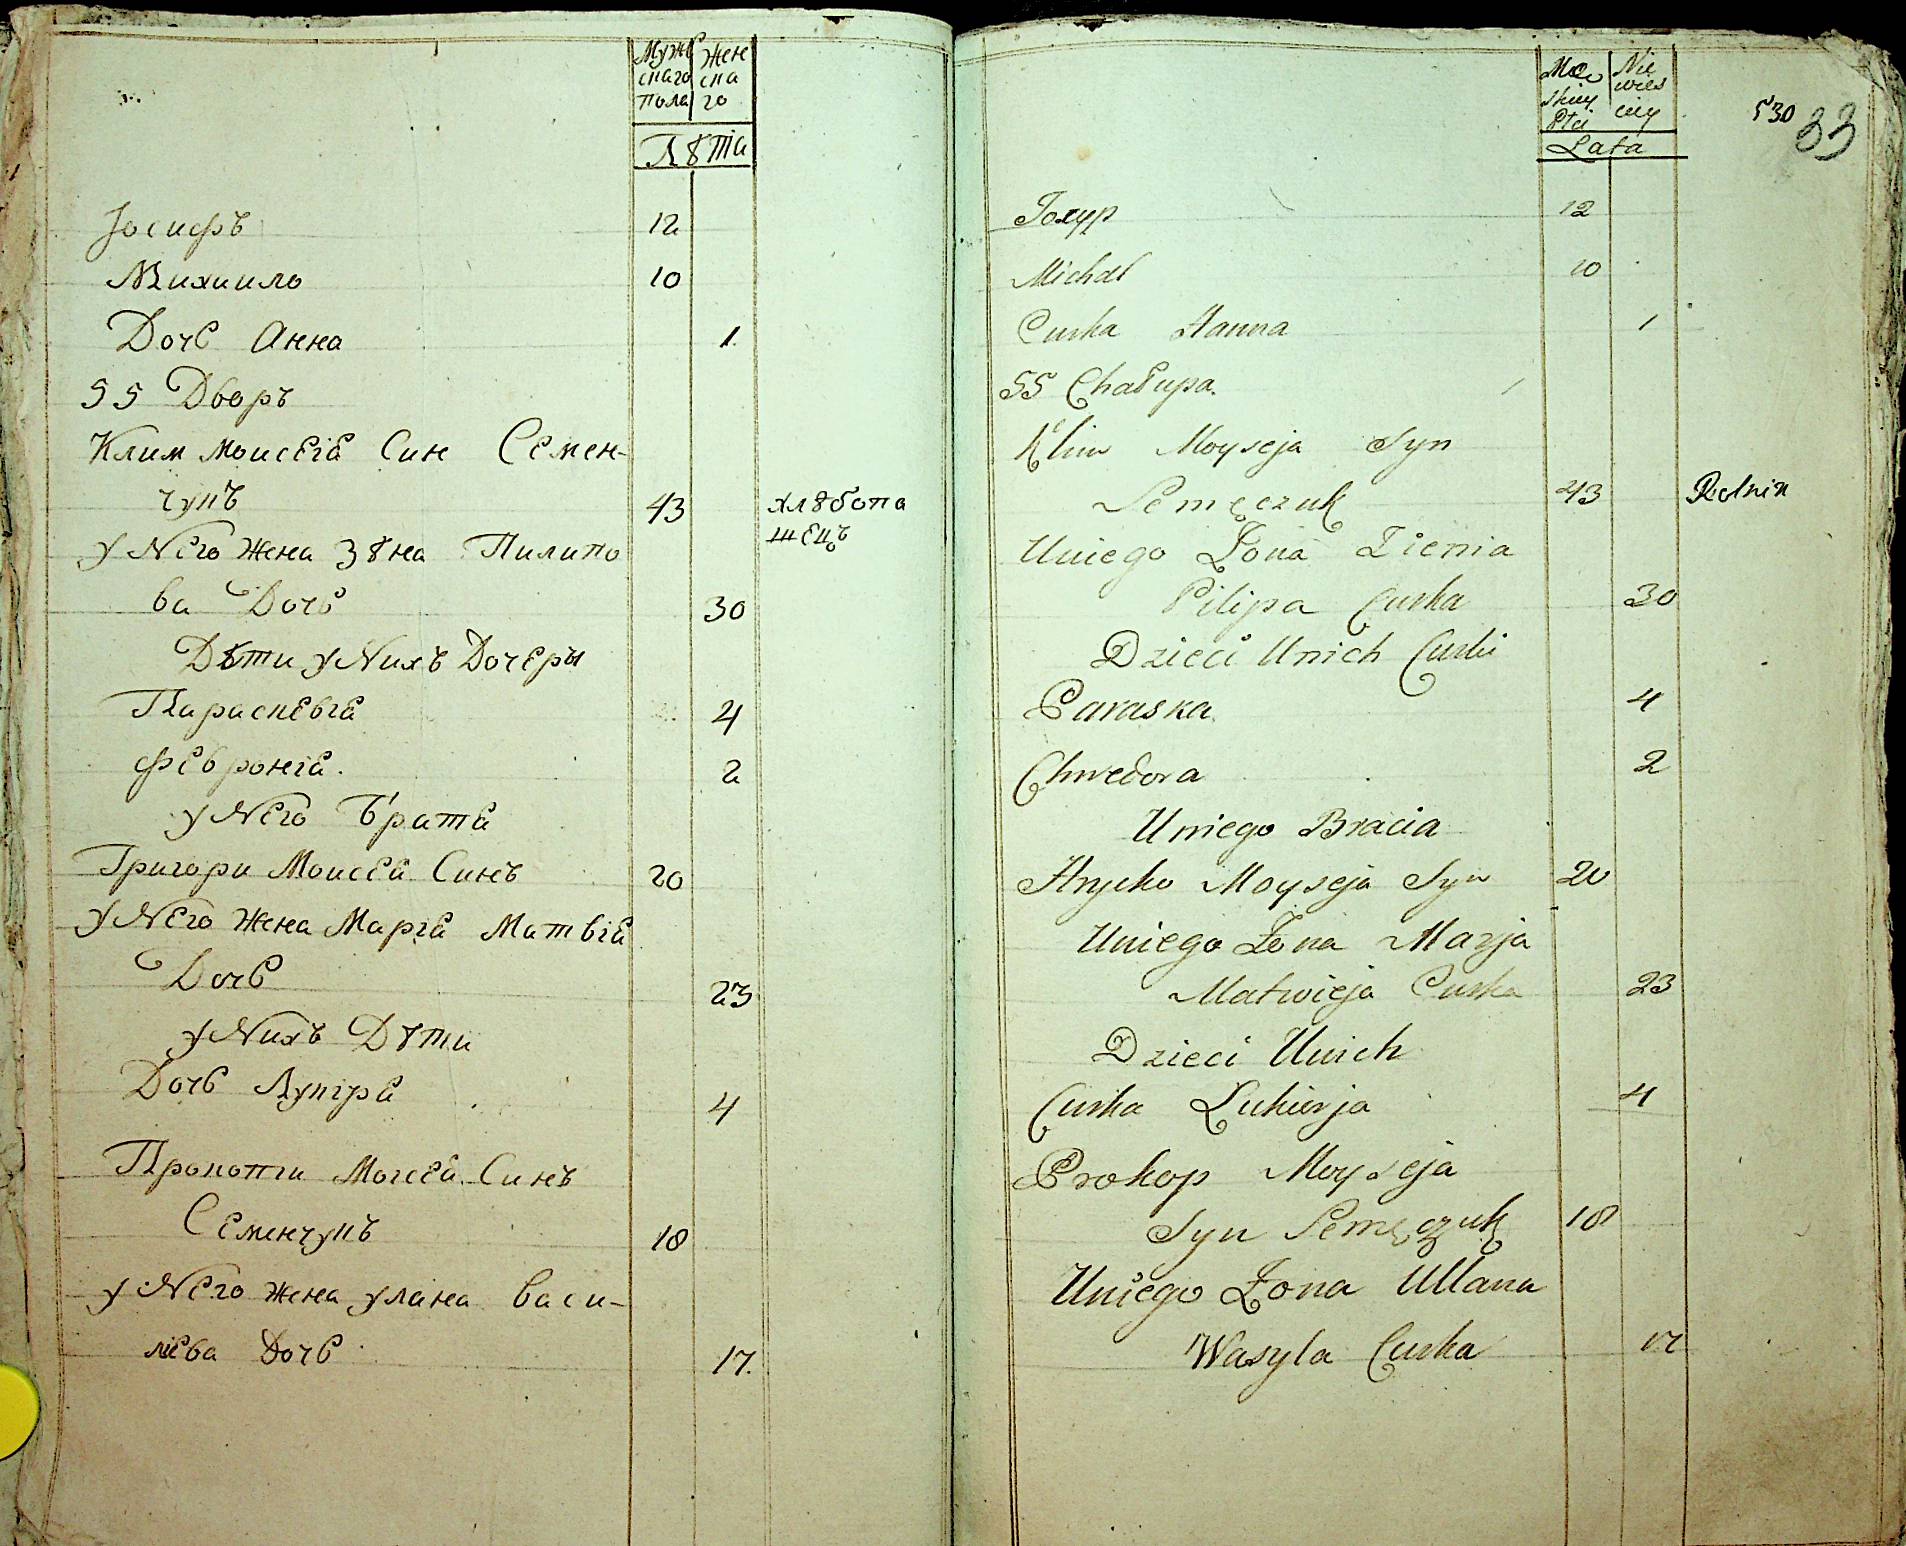 Мужескаго пола
Женскаго
Лѣта
Іосифъ 12
Михаило 10
Дочь Анна 1
55 Дворъ
Клим Моисеія Син Семен-
чукъ 43 хлѣбопа
шецъ
у Него Жена Зѣна Пилипо
ва Дочь 30
Дѣти у Нихъ Дочеры
Параскевіа 4
Февроніа 2
у Него Брата
Григори Моисеа Синъ 20
у Него Жена Маріа Матвіа
Дочь 23
у Нихъ Дѣти
Дочь Лукіра 4
Прокопи Моисеа Синъ
Семенчукъ 18
у Него жена улана Васи-
лева Дочь 17.
Męskiey Płci
Niewiesciey
530
33
Lata
12
Michał 10
Curka Hanna 1
55 Chałupa.
Klim Moyseja Syn
Semęczuk 43 Rolnik
Uniego Żona Zienia
Pilipa Curka 30
Dzieci Unich Curki
Paraska 4
Chwedora 2
Uniego Bracia
Hrycko Moyseja Syn 20
Uniego Żona Marja
Matwieja Curka 23
Dzieci Unich
Curka Łukierja 4
Prokop Moyseja
Syn Semęczuk 18
Uniego Żona Ullana
Wasyla Curka 17